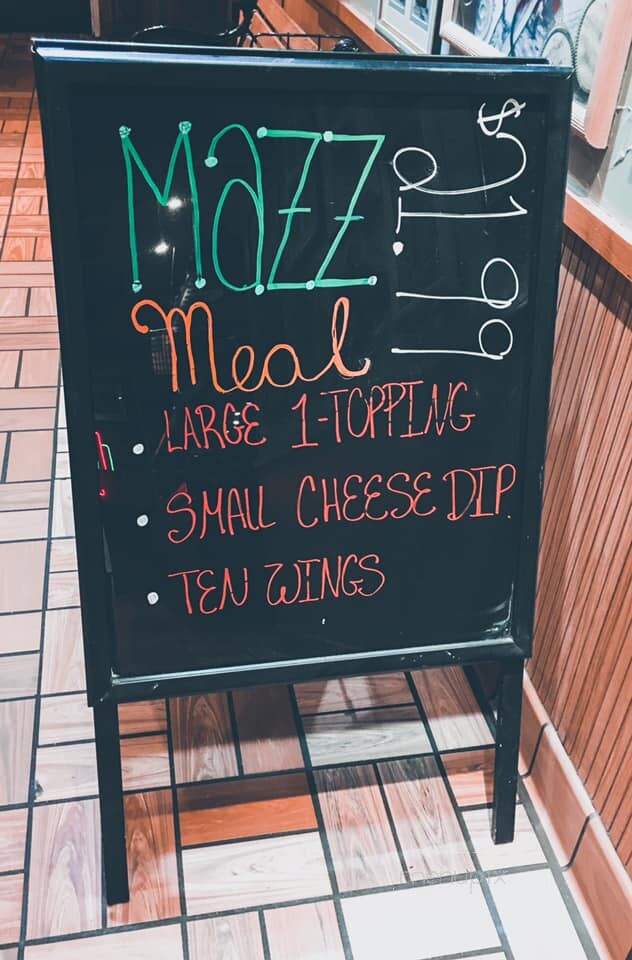 Mazz
Meal
$21.99
• LARGE 1-TOPPING
• SMALL CHEESE DIP
• TEN WINGS